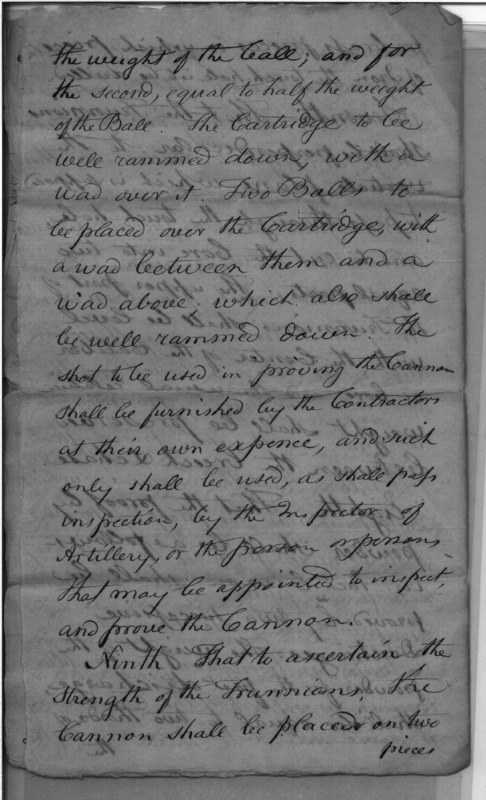 the weight of the Ball; and for
the second, equal to half the weight
of the Ball. The Cartridge to be
well rammed down, with a
wad over it. Two Balls to
be placed over the Cartridge, with
a wad between them and a
wad above. which also shall
be well rammed down. The
shot to be used in proving the Cannon
shall be furnished by the Contractors
at their own expence, and such
only shall be used, as shall pass
inspection, by the Inspector of
Artillery, or the person or persons
that may be appointed to inspect,
and prove the Cannon.
Ninth That to ascertain the
strength of the Trunnians, the
Cannon shall be placed on two
pieces